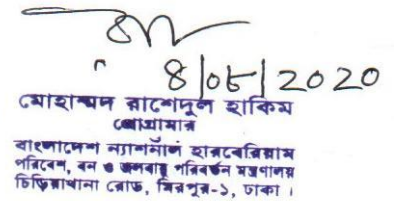 8/08/2020
মোহাম্মদ রাশেদুল হাকিম
প্রোগ্রামার
বাংলাদেশ ন্যাশনাল হারবেরিয়াম
পরিবেশ, বন ও জলবায়ু পরিবর্তন মন্ত্রণালয়
চিড়িয়াখানা রোড, মিরপুর-১, ঢাকা ।